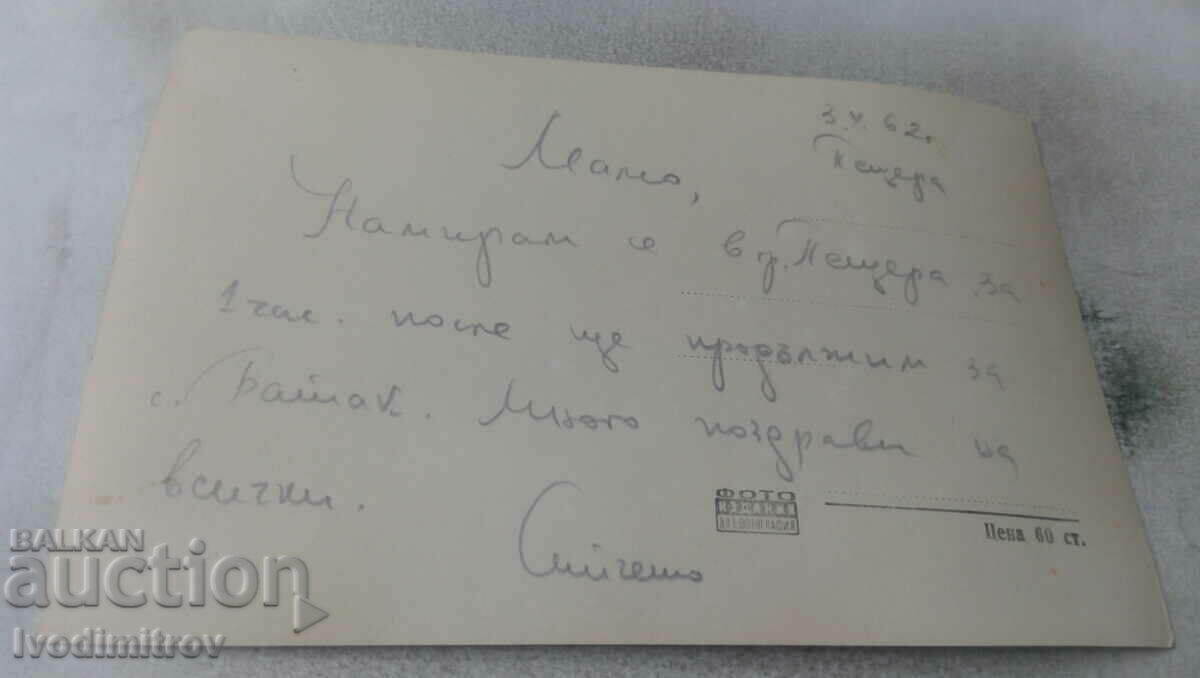 3.V.62г.
Пещера
Мамо,
Намирам се в гр. Пещера за
1 час. после ще продължим за
с. Батак. Много поздрави на
всички.
ФОТО
ИЗДАНИЕ
Цена 60 ст.
BALKAN
auction
Ivodimitrov